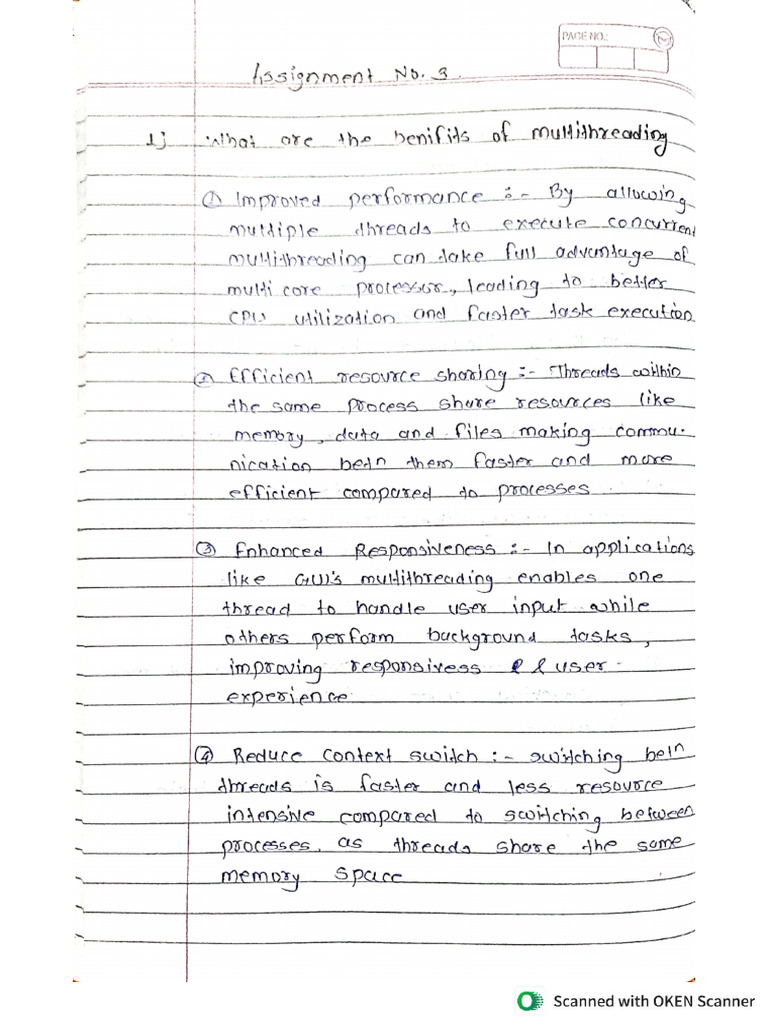 PAGE NO.:
Assignment No. 3.
1] What are the benifits of multithreading
① Improved performance :- By allowing
multiple threads to execute concurrent
multithreading can take full advantage of
multi core processor, leading to better
CPU utilization and faster task execution
② Efficient resource sharing :- Threads within
the same process share resources like
memory, data and files making commu-
nication betn them faster and more
efficient compared to processes
③ Enhanced Responsiveness :- In applications
like GUI's multithreading enables one
thread to handle user input while
others perform background tasks,
improving responsivess & user
experience
④ Reduce context switch :- switching betn
threads is faster and less resource
intensive compared to switching between
processes, as threads share the same
memory space
Scanned with OKEN Scanner